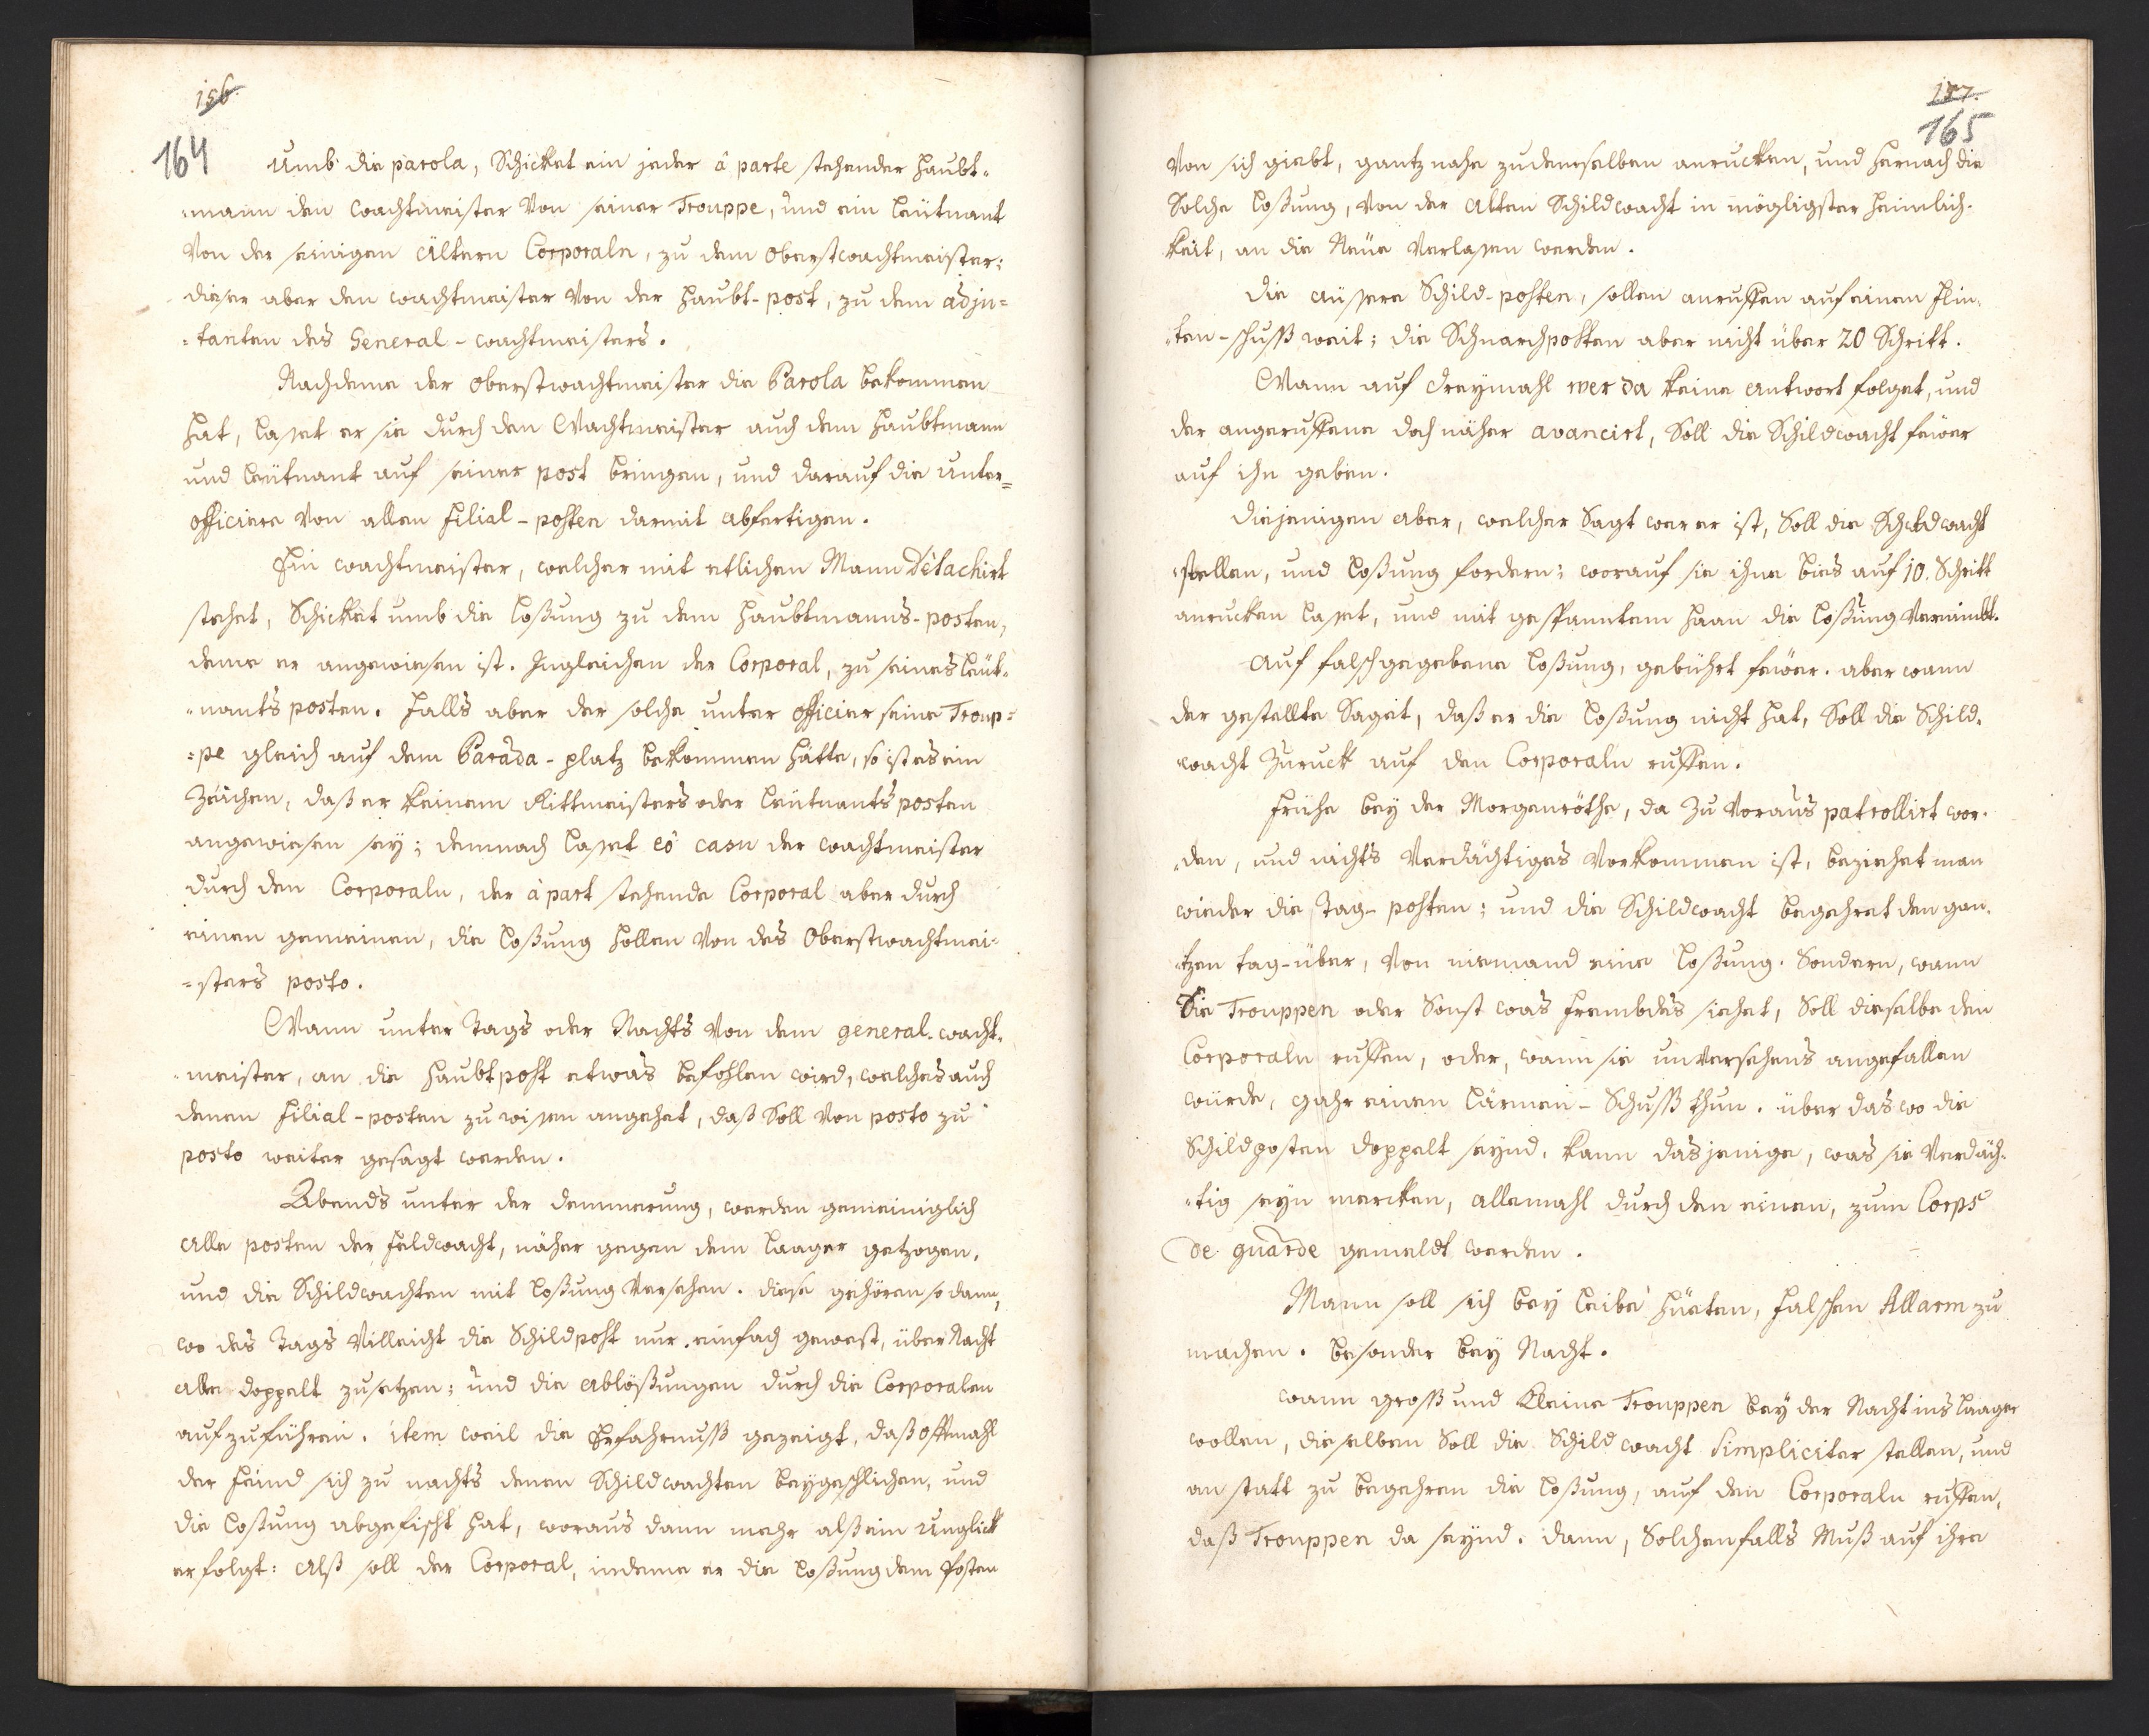 156.
164
Umb die parola, Schicket ein jeder â parte stehender Haubt-
-mann den wachtmeister Von seiner Trouppe, und ein leütnant
Von der seinigen ältern Corporaln, zu dem Oberstwachtmeister:
dieser aber den wachtmeister Von der Haubt-post, zu dem adju=
=tanten des General-wachtmeisters.
Nachdeme der Oberstwachtmeister die Parola bekommen
hat, lasset er sie durch den Wachtmeister auch dem Haubtmann
und leütnant auf seiner post bringen, und darauf die Unter=
officiere Von allen Filial-posten darmit abfertigen.
Ein wachtmeister, welcher mit etlichen Mann Dètachirt
stehet, Schicket umb die Loßung zu dem Haubtmanns-posten,
deme er angewiesen ist. Ingleichen der Corporal, zu seines leüt-
-nants posten. Falls aber der solche unter officier seine Troup=
=pe gleich auf dem Parada-platz bekommen hätte, so ist es ein
Zeichen, daß er keinem Rittmeisters oder leütnants posten
angewiesen seÿ; demnach lasset eô casu der wachtmeister
durch den Corporaln, der à part stehende Corporal aber durch
einen gemeinen, die Loßung hollen Von des Oberstwachtmei=
=sters posto.
Wann unter Tags oder Nachts Von dem general-wacht-
-meister, an die Haubtpost etwas befohlen wird, welches auch
denen Filial-posten zu wissen angehet, daß Soll Von posto zu
posto weiter gesagt werden.
Abends unter der demmerung, werden gemeiniglich
alle posten der feldwacht, näher gegen dem Laager getzogen,
und die Schildwachten mit Loßung Versehen. diese gehören so dann,
wo des Tags Villeicht die Schildpost nur einfach gewest, über Nacht
alle doppelt zusetzen; und die Ablößungen durch die Corporalen
aufzuführen. item weil die Erfahrnuß gezeigt, daß offtmahl
der feind sich zu nachts denen Schildwachten beÿgeschlichen, und
die Loßung abgefischt hat, woraus dann mehr alß ein Unglick
erfolgt: Alß soll der Corporal, indeme er die Loßung dem Posten
157.
165
Von sich giebt, gantz nahe zudemselben anrucken, und hernach die
Solche Loßung, Von der Alten Schildwacht in mögligster heimlich-
keit, an die Neüe Verlassen werden.
Die äüssere Schild-posten, sollen anruffen auf einen Flin-
-ten-schuß weit; die Schnarchposten aber nicht über 20 Schritt.
Wann auf dreÿmahl wer da keine Antwort folget, und
der angeruffene doch näher avancirt, Soll die Schildwacht feüer
auf ihn geben.
diejenigen aber, welcher Sagt wer er ist, Soll die Schildwacht
stellen, und Loßung fordern; worauf sie ihne bies auf 10. Schritt
anrucken lasset, und mit gespanntem Haan die Loßung Vernimbt.
auf falsch gegebene Loßung, gebührt feüer. aber wann
der gestellte Saget, daß er die Loßung nicht hat, Soll die Schild-
wacht Zuruck auf den Corporaln ruffen.
Frühe beÿ der Morgenröthe, da Zu Voraus patrollirt wor-
-den, und nichts Verdächtiges Vorkommen ist, beziehet man
wieder die Tag-posten; und die Schildwacht begehret den gan-
-tzen tag-über, Von niemand eine Loßung. Sondern, wann
Sie Trouppen oder Sonst was frembdes siehet, Soll dieselbe den
Corporaln ruffen, oder, wann sie unversehens angefallen
würde, gahr einen Lärmen-Schuß thun. über das wo die
Schildposten doppelt seÿnd, kann dasjenige, was sie Verdäch-
-tig seÿn mercken, allemahl durch den einen, zum Corps
de guarde gemeldt werden.
Mann soll sich beÿ leibe hüeten, falschen Allarm zu
machen. besonder beÿ Nacht.
wann groß und Kleine Trouppen beÿ der Nacht ins Laager
wollen, dieselben Soll die Schildwacht Simpliciter stellen, und
an statt zu begehren die Loßung, auf den Corporaln ruffen,
daß Trouppen da seÿnd. dann, Solchenfalls Muß auf ihre